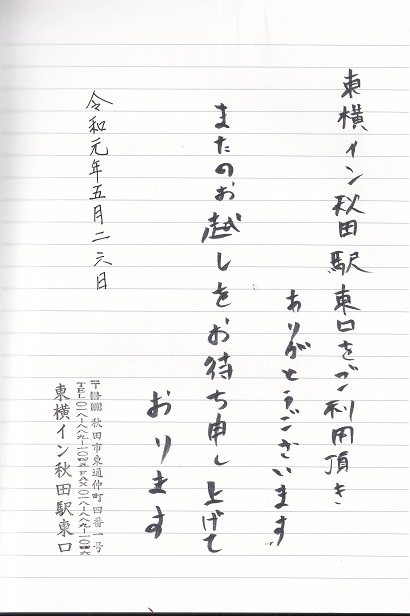 東横イン秋田駅東口をご利用頂き
ありがとうございます
またのお越しをお待ち申し上げて
おります
令和元年五月二六日
〒 秋田市東通仲町四番一号
TEL〇一八-八八九- FAX〇一八-八八九-一〇四六
東横イン秋田駅東口